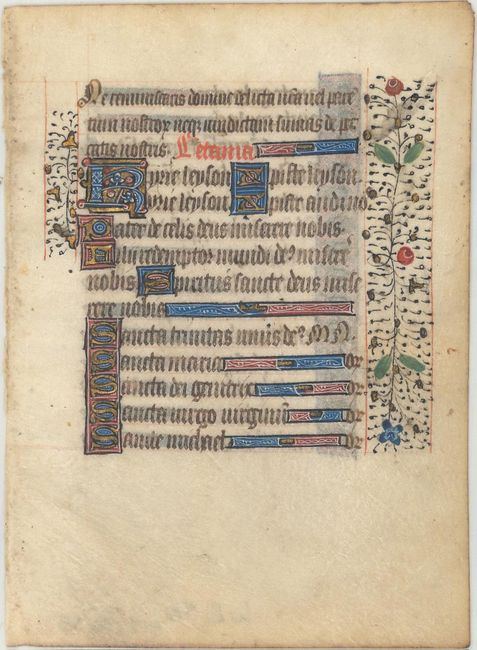 Ne reminiscaris domine delicta nr̄a vel pare
tum nostror neqȝ vindictam sumas de pec
catis nostris. Letania
Kyrie leyson Xpiste leyson.
Kyrie leyson Xpiste audi no
Pater de celis deus miserere nobis.
Fili redemptor mundi deꝰ misere
nobis Spiritus sancte deus mise
rere nobis
Sancta trinitas unus deꝰ M N
Sancta maria or
Sancta dei genitrix or
Sancta virgo virginū or
Sancte michael or